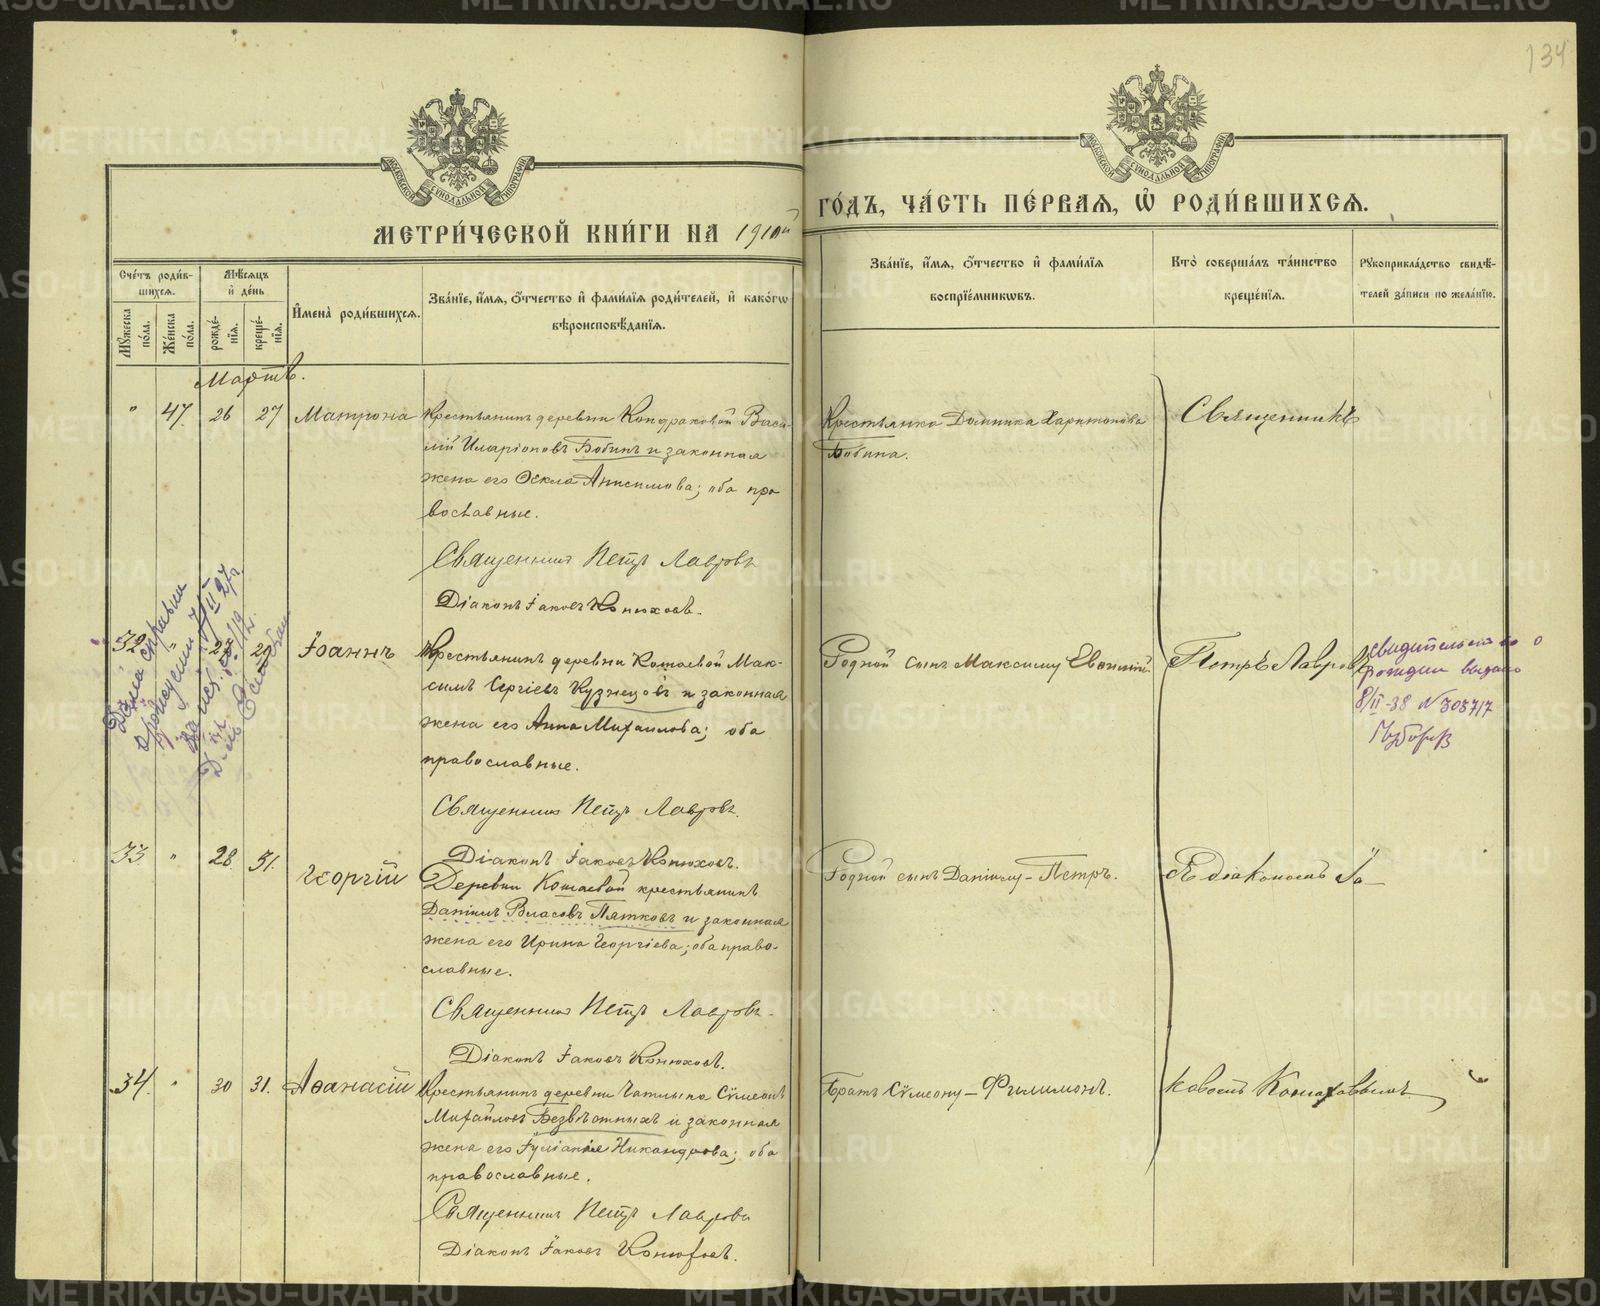 134
МОСКОВСКОЙ СѴНОДАЛЬНОЙ ТИПОГРАФІИ
МОСКОВСКОЙ СѴНОДАЛЬНОЙ ТИПОГРАФІИ
МЕТРИ́ЧЕСКОЙ КНИ́ГИ НА 1910й
ГО́ДЪ, ЧА́СТЬ ПЕ́РВАЯ, Ѽ РОДИ́ВШИХСЯ.
Сче́тъ роди́в-
шихся.
Мꙋ́жеска по́ла.
Же́нска по́ла.
Мѣ́сяцъ и҆ де́нь
рожде́-
нїя.
креще́-
нїя.
И҆мена̀ роди́вшихся.
Зва́нїе, и҆́мя, ѻ҆́тчество и҆ фами́лїя роди́телей, и҆ како́гѡ
вѣроисповѣ́данїя.
Зва́нїе, и҆́мя, ѻ҆́тчество и҆ фами́лїя
воспрїе́мникѡвъ.
Кто̀ соверша́лъ та́инство
креще́нїя.
Рꙋкоприкла́дство свидѣ́-
телей за́писи по жела́нїю.
Мартъ.
" 47 26 27 Матрона
Крестьянинъ деревни Кондраковой Васи-
лій Иларіоновъ Бобинъ и законная
жена его Ѳекла Анисимова; оба пра
вославные.
Священникъ Петръ Лавровъ
Діаконъ Іаковъ Конюховъ.
Крестьянка Домника Харитонова
Бобина.
Священникъ
32 " 27 29 Іоаннъ
Крестьянинъ деревни Комаевой Мак-
симъ Сергіевъ Кузнецовъ и законная
жена его Анна Михаилова; оба
православные.
Священникъ Петръ Лавровъ.
Діаконъ Іаковъ Конюховъ.
Родной сынъ Максиму Евѳимій.
Петръ Лавровъ,
свидетельство о
рождении выдано
8/II-38 N 303717
33 " 28 31. Георгій
Деревни Комаевой крестьянинъ
Даніилъ Власовъ Пятковъ и законная
жена его Ирина Георгіева; оба право-
славные.
Священникъ Петръ Лавровъ.
Діаконъ Іаковъ Конюховъ.
Родной сынъ Даніилу – Петръ.
Я діакономъ Іа-
34. " 30 31. Аѳанасій
Крестьянинъ деревни Чатлыка Сѵмеонъ
Михайловъ Безвѣтныхъ и законная
жена его Іуліанія Никандрова; оба
православные.
Священникъ Петръ Лавровъ
Діаконъ Іаковъ Конюховъ.
Братъ Сѵмеону – Филимонъ.
ковомъ Конюховымъ
METRIKI.GASO-URAL.RU